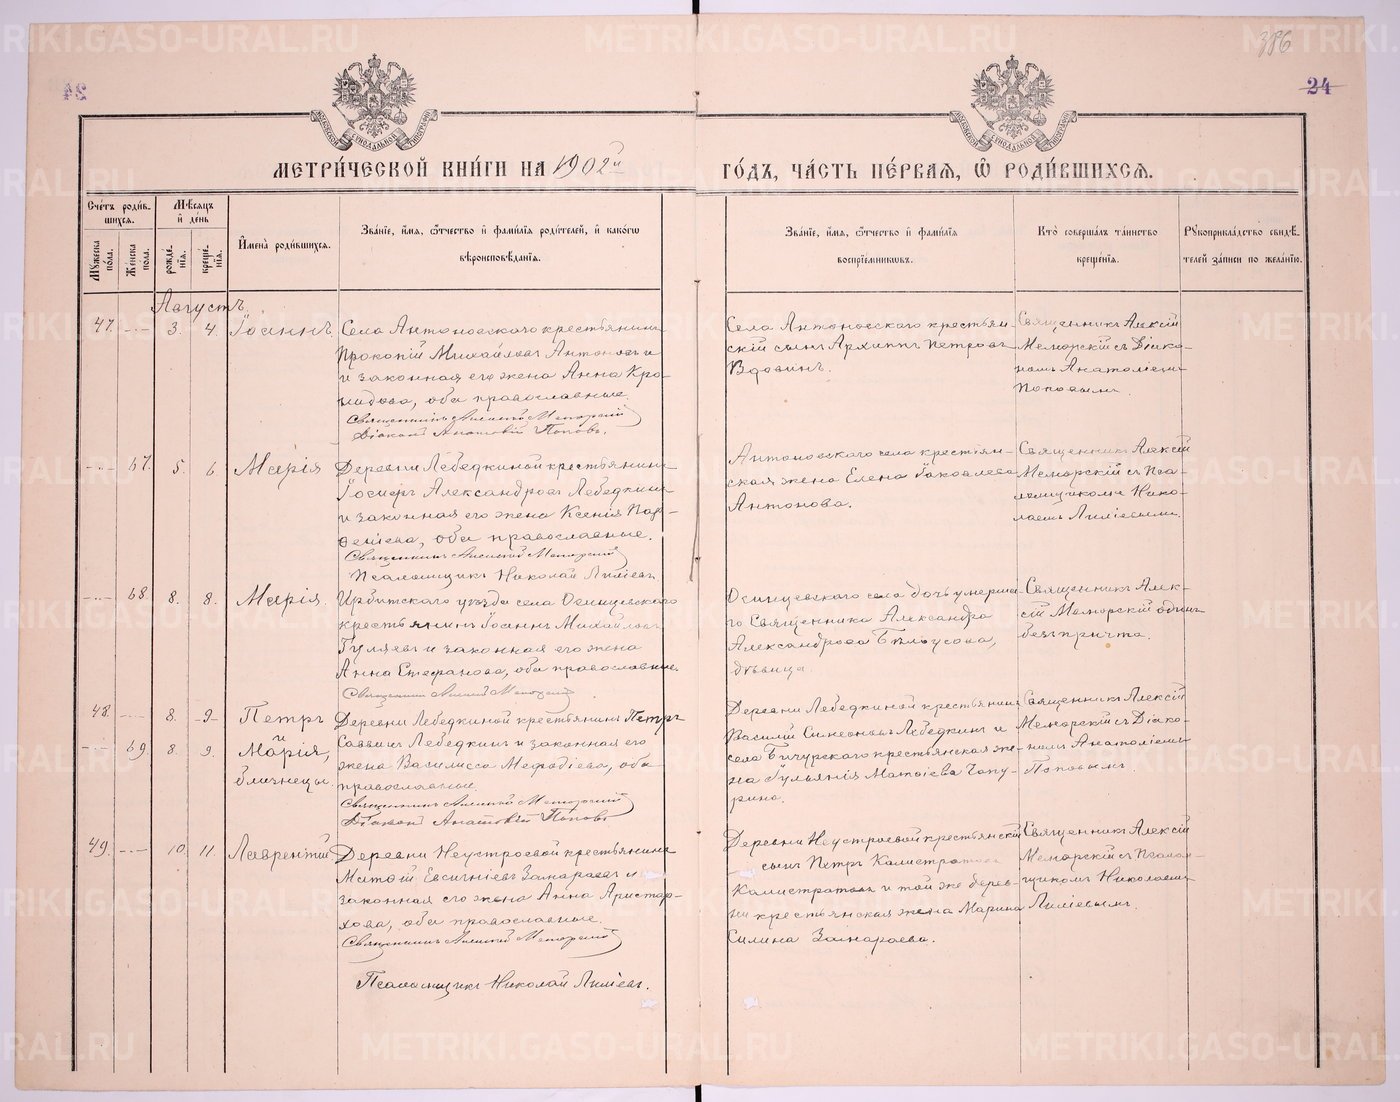 386
24
МЕТРИ́ЧЕСКОЙ КНИ́ГИ НА 1902й
ГО́ДЪ, ЧА́СТЬ ПЕ́РВАЯ, Ѽ РОДИ́ВШИХСЯ.
Сче́тъ роди́в-
шихся.
Мѣ́сяцъ
и̂ де́нь
Му́жеска по́ла.
Же́нска по́ла.
рожде́-
нїя.
креще́-
нїя.
И̂мена̀ роди́вшихся.
Зва́нїе, и́мя, ѻ́тчество и̂ фами́лїя роди́телей, и̂ како́гѡ
вѣроисповѣ́данїя.
Зва́нїе, и́мя, ѻ́тчество и̂ фами́лїя
воспрїе́мниковъ.
Кто̀ соверша́лъ та́инство
креще́нїя.
Рꙋкоприкла́дство свидѣ́-
телей за́писи по жела́нїю.
Августъ.
47. -"- 3. 4. Іоаннъ.
Села Антоновскаго крестьянинъ
Прокопій Михайловъ Антоновъ и
и законная его жена Анна Кро-
нидова, оба православные.
Священникъ Алексій Меморскій
Діаконъ Анатолій Поповъ.
Села Антоновскаго крестьян-
скій сынъ Архиппъ Петровъ
Вдовинъ.
Священникъ Алексій
Меморскій съ Діако-
номъ Анатоліемъ
Поповымъ.
-"- 67. 5. 6. Марія
Деревни Лебедкиной крестьянинъ
Іосифъ Александровъ Лебедкинъ
и законная его жена Ксенія Пар-
ѳеніева, оба православные.
Священникъ Алексій Меморскій
Псаломщикъ Николай Лиліевъ
Антоновскаго села крестьян-
ская жена Елена Іаковлева
Антонова.
Священникъ Алексій
Меморскій съ Пса-
ломщикомъ Нико-
лаемъ Лиліевымъ.
-"- 68. 8. 8. Марія.
Ирбитскаго уѣзда села Осинцевскаго
крестьянинъ Іоаннъ Михайловъ
Гуляевъ и законная его жена
Анна Стефанова, оба православные.
Священникъ Алексій Меморскій
Осинцевскаго села дочь умерша-
го Священника Александра
Александрова Бѣлоусова,
дѣвица.
Священникъ Алек-
сій Меморскій одинъ
безъ причта.
48. -"- 8. 9. Петръ
и
-"- 69. 8. 9. Марія,
близнецы.
Деревни Лебедкиной крестьянинъ Петръ
Саввинъ Лебедкинъ и законная его
жена Василисса Меѳодіева, оба
православные.
Священникъ Алексій Меморскій
Діаконъ Анатолій Поповъ
Деревни Лебедкиной крестьянинъ
Василій Симеоновъ Лебедкинъ и
села Бичурскаго крестьянская же-
на Іуліанія Матѳіева Чапу-
рина.
Священникъ Алексій
Меморскій съ Діако-
номъ Анатоліемъ
Поповымъ.
49. -"- 10. 11. Лаврентій
Деревни Неустроевой крестьянинъ
Матѳій Евсигніевъ Замараевъ и
законная его жена Анна Аристар-
хова, оба православные
Священникъ Алексій Меморскій
Псаломщикъ Николай Лиліевъ.
Деревни Неустроевой крестьянскій
сынъ Петръ Калистратовъ
Калистратовъ и той же дерев-
ни крестьянская жена Марина
Силина Замараева.
Священникъ Алексій
Меморскій съ Псалом-
щикомъ Николаемъ
Лиліевымъ.
METRIKI.GASO-URAL.RU